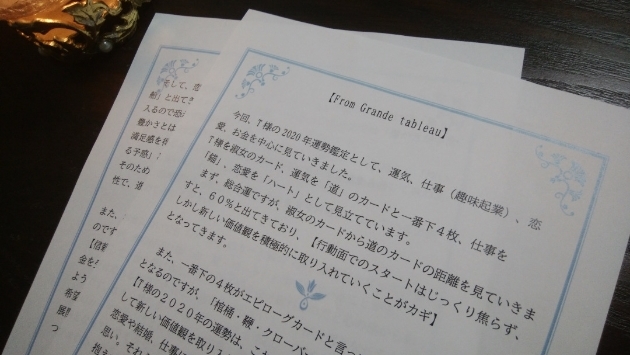 【From Grande tableau】
今回、T様の2020年運勢鑑定として、運気、仕事（趣味起業）、恋
愛、お金を中心に見ていきました。
T様を淑女のカード、運気を「道」のカードと一番下4枚、仕事を
「錨」、恋愛を「ハート」として見立てています。
まず、総合運ですが、淑女のカードから道のカードの距離を見ていきま
すと、60%と出てきており、【行動面でのスタートはじっくり焦らず、
しかし新しい価値観を積極的に取り入れていくことがカギ】
となってきます。
また、一番下の4枚がエピローグカードと言っ
となるのですが、「棺桶・鞭・クローバー
【T様の2020年の運勢は、これ
して新しい価値観を取り入
恋愛や結婚、仕事に
思い。それ
そして、恋
」と出てき
入るので恐
豊かさとは
満足感を得
る予感」
そのため
性で、道
また、
のです
金を
よう
希望
つ